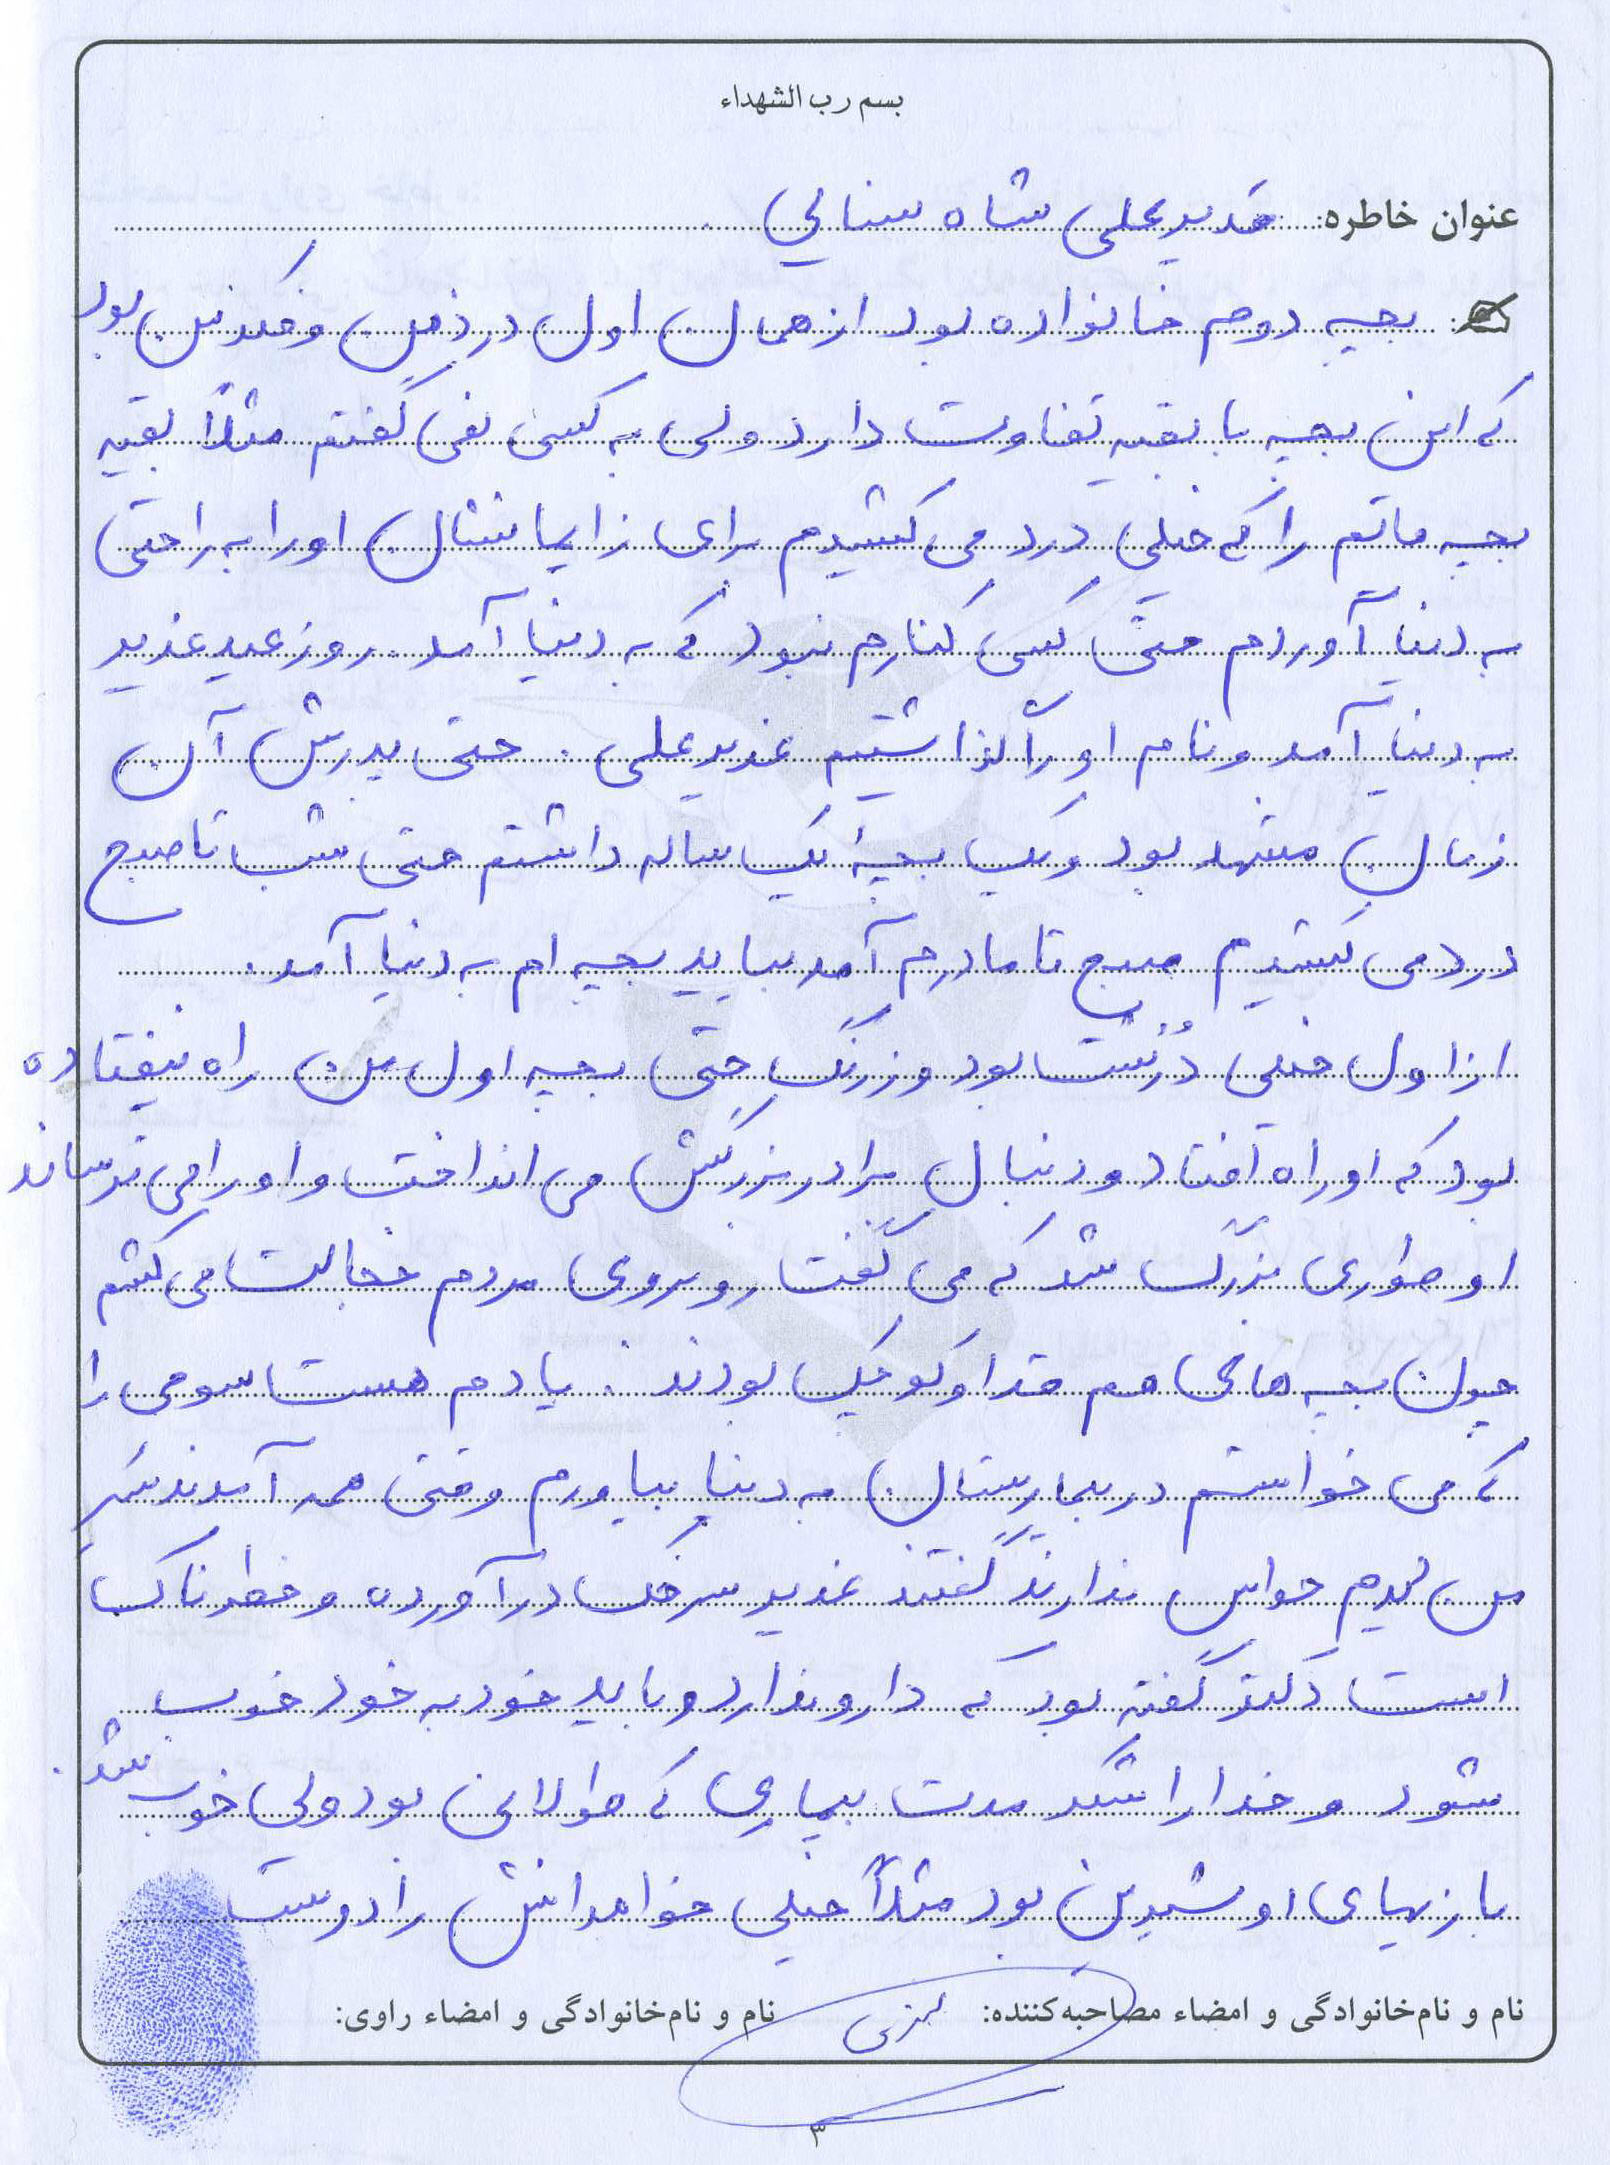 بسم رب الشهداء
عنوان خاطره: غدیرعلی شاه سنائی
بچه دوم خانواده بود از همان اول در ذهن و فکر من بود
که این بچه با بقیه تفاوت دارد ولی به کسی نمی گفتم مثلاً بقیه
بچه هایم را که خیلی درد می کشیدم برای زایمانشان او را به راحتی
به دنیا آوردم حتی کسی کنارم نبود که به دنیا آمد. روز عید غدیر
به دنیا آمد و نام او را گذاشتیم غدیرعلی. حتی پدرش آن
زمان مشهد بود و یک بچهٔ یک ساله داشتم حتی شب تا صبح
درد می کشیدم صبح تا مادرم آمد بیاید بچه ام به دنیا آمد.
از اول خیلی دُرُشت بود و زرنگ حتی بچه اول من راه نیفتاده
بود که او راه افتاد و دنبال برادر بزرگش می انداخت و او را می ترساند
او طوری بزرگ شد که می گفت روبروی مردم خجالت می کشم
چون بچه های هم قد او کوچک بودند. یادم هست سومی را
که می خواستم در بیمارستان به دنیا بیاورم وقتی همه آمدند سَر
من دیدم حواس ندارند گفتند غدیر سرخک درآورده و خطرناک
است دکتر گفته بود که دارو ندارد و باید خود به خود خوب
شود و خدا را شکر مدت بیماری که طولانی بود ولی خوب شد.
بازیهای او شیرین بود مثلاً خیلی خواهرانش را دوست
نام و نام‌خانوادگی و امضاء مصاحبه‌کننده:
نام و نام‌خانوادگی و امضاء راوی:
۳